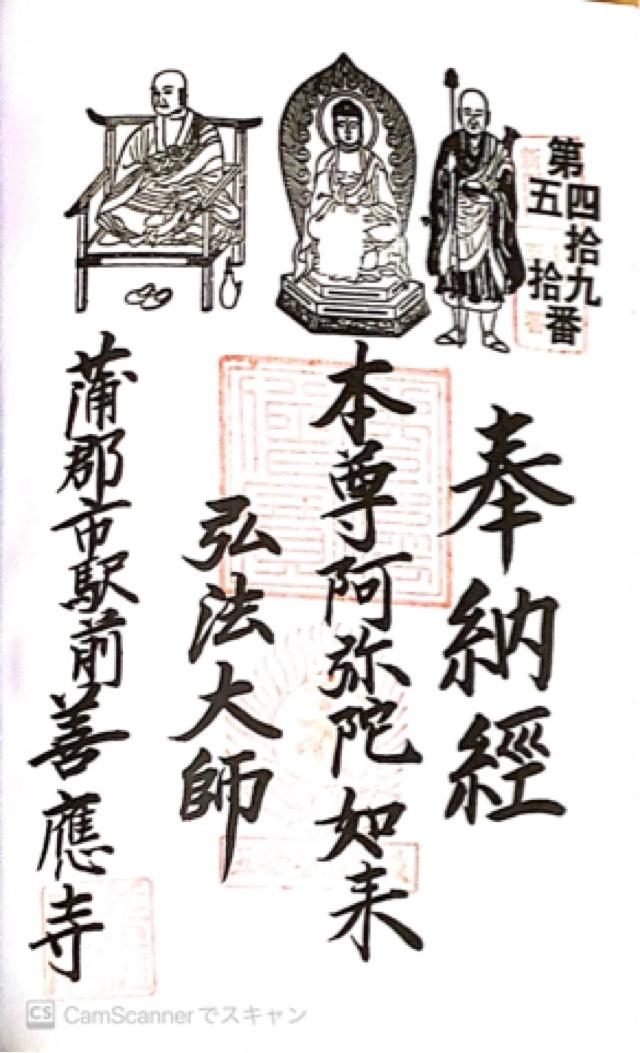 第四拾九番
五拾
奉納經
本尊阿弥陀如来
弘法大師
蒲郡市駅前善應寺
CS CamScannerでスキャン